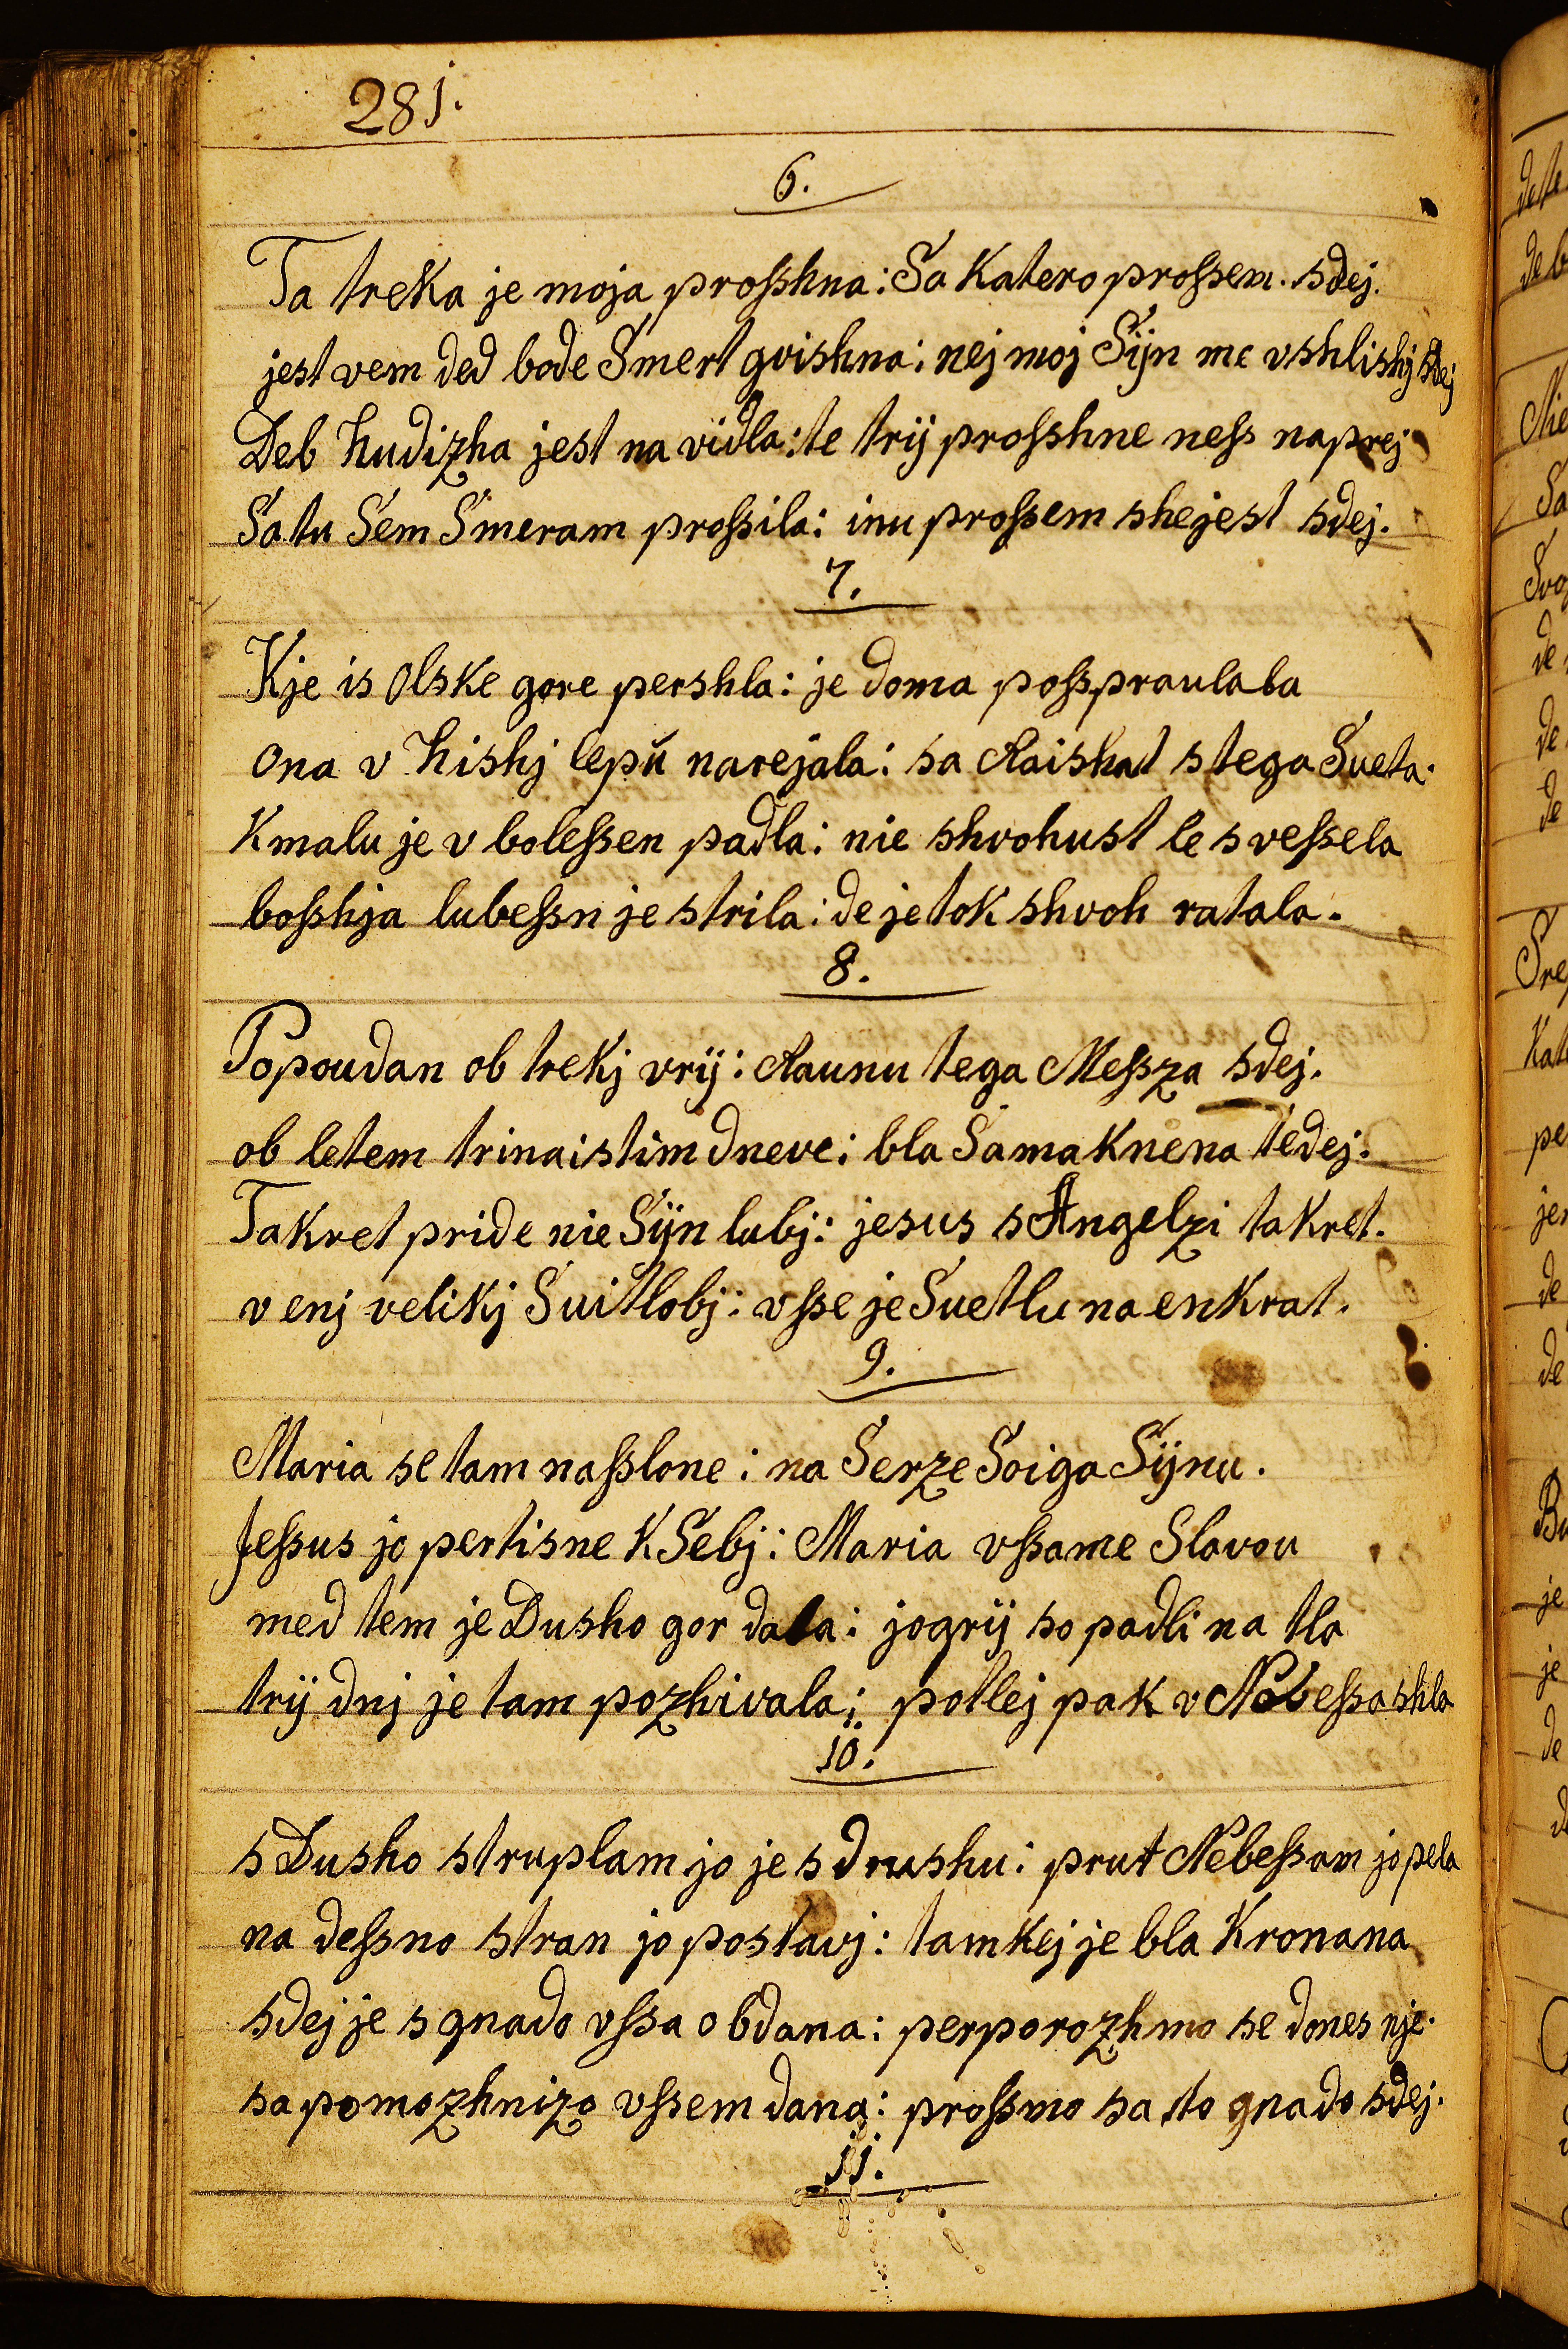 281.
6.
Ta treka je moja proſshna: Sa katero proſsem. sdej.
jest vem ded bode Smert gvishna: nej moj Sijn me vshlishj sdej
Deb hudizha jest na vidla: te trij proſshne neſs naprej
Sa tu Sem Smeram proſsila: inu proſsem shejest sdej.
7.
Kje is Olske gore pershla: je doma poſspraulala
Ona v hishj lepu narejala: sa Raishat s tega Sveta.
Kmalu je v boleſsen padla: nie shvohust le s veſsela
boſshja lubeſsn je strila: de je tok shvoh ratala.
8.
Popoudan ob trekj vrij: Raunu tega Meſsza sdej.
ob letem trinaistim dneve: bla Sama knena tedej.
Takret pride nie Sijn lubj: jesus s Angelzi takret.
v enj velikj Suitlobj: vſse je Suetlu na enkrat.
9.
Maria se tam naſslone: na Serze Soiga Sijnu.
Jeſsus jo pertisne k Sebj: Maria vſsame Slavou
med tem je Dusho gor dala: jogrij so padli na tla
trij dnj je tam pozhivala: potlej pak v Nebeſsa shla
10.
s Dusho struplam jo je sdrushu: prut Nebeſsam jo pela
na deſsno stran jo postavj: tamkej je bla kronana
sdej je s gnado vſsa obdana: perporozhmo se dones nje.
sa pomozhnizo vſsem dana: proſsmo sa to gnado sdej.
11.